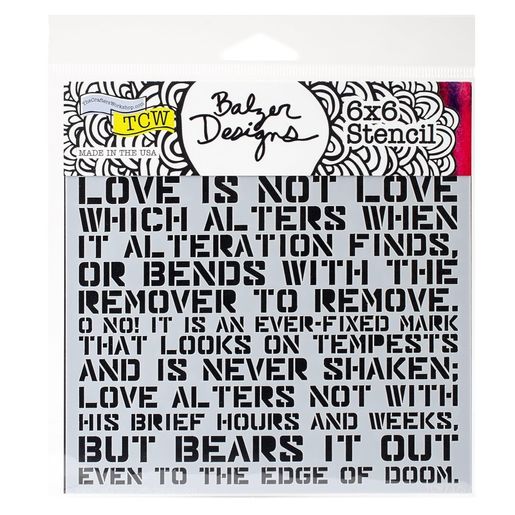 TheCraftersWorkshop.com
TCW
MADE IN THE USA
Balzer
Designs
6x6
Stencil
LOVE IS NOT LOVE
WHICH ALTERS WHEN
IT ALTERATION FINDS,
OR BENDS WITH THE
REMOVER TO REMOVE.
O NO! IT IS AN EVER-FIXED MARK
THAT LOOKS ON TEMPESTS
AND IS NEVER SHAKEN;
LOVE ALTERS NOT WITH
HIS BRIEF HOURS AND WEEKS,
BUT BEARS IT OUT
EVEN TO THE EDGE OF DOOM.